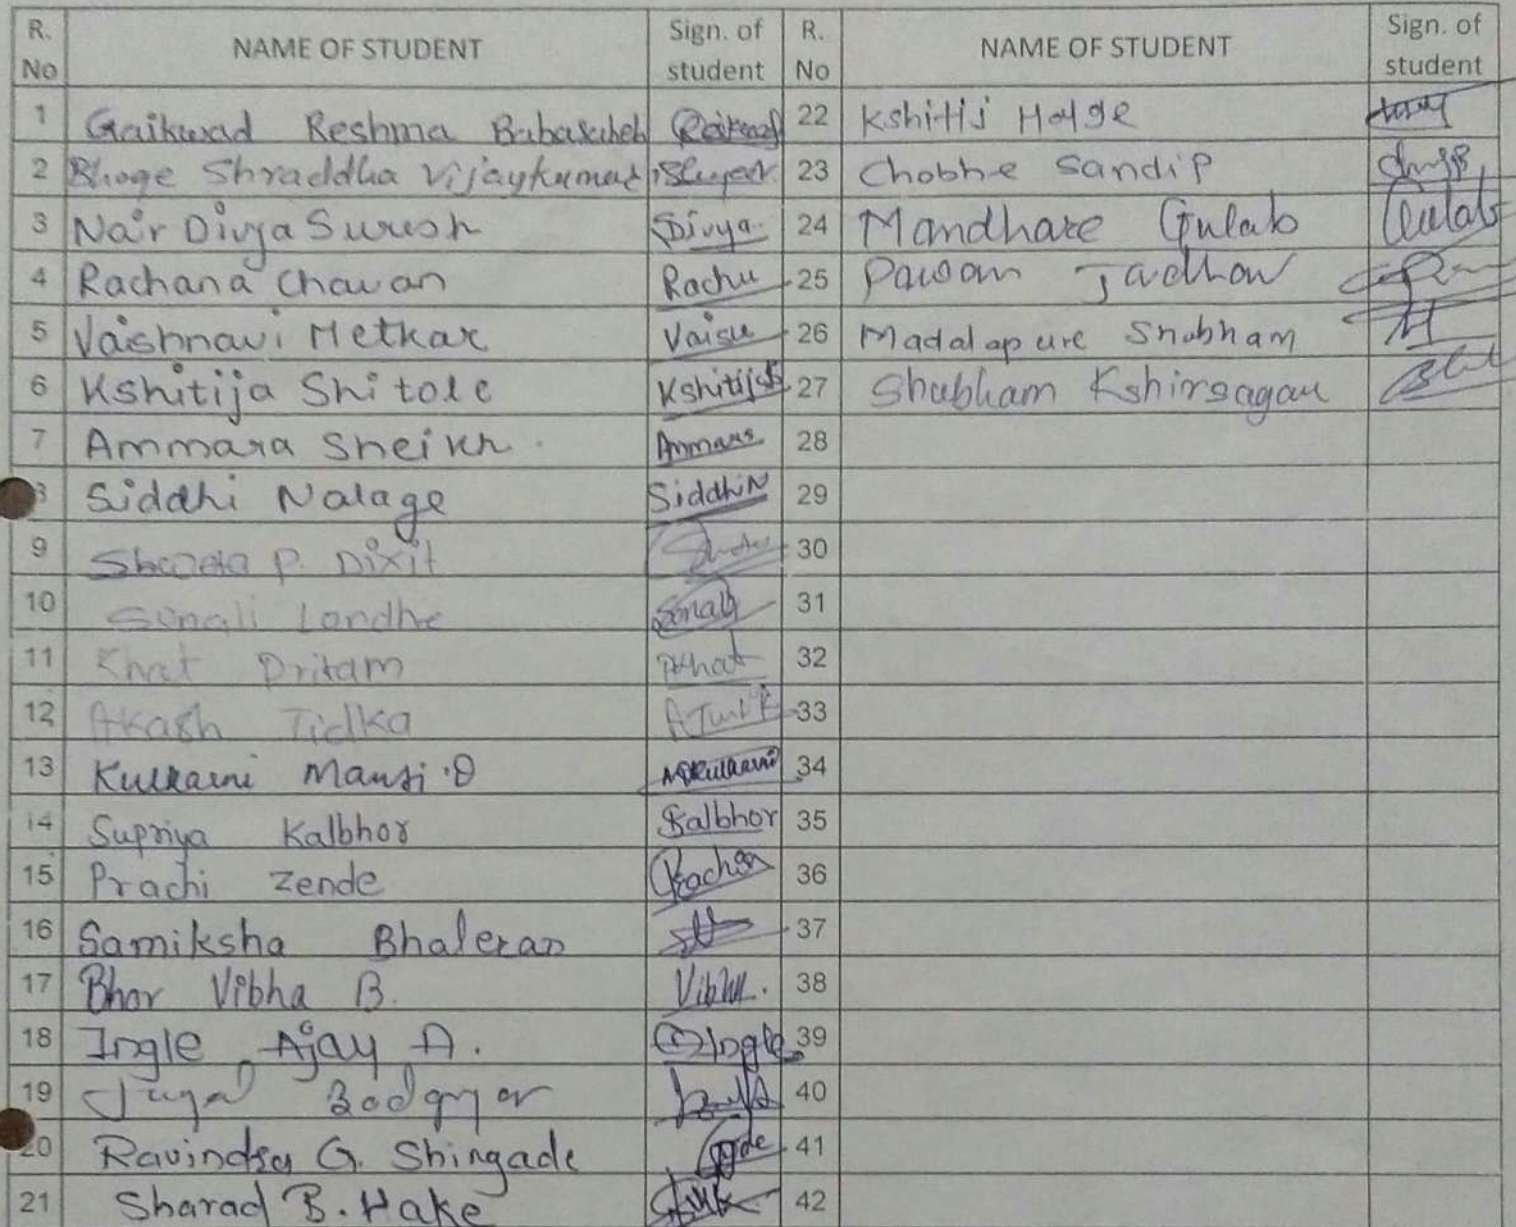 R. No NAME OF STUDENT Sign. of student R. No NAME OF STUDENT Sign. of student
1 Gaikwad Reshma Babasaheb 22 Kshitij Holge
2 Bhoge Shraddha Vijaykumar 23 Chobhe Sandip
3 Nair Divya Suresh Divya. 24 Mandhare Gulab Gulab
4 Rachana Chavan Rachu 25 Pawan Jadhav
5 Vaishnavi Metkar Vaisu 26 Madalapure Shubham
6 Kshitija Shitole Kshitija 27 Shubham Kshirsagar
7 Ammara Sheikh Ammara 28
8 Siddhi Nalage SiddhiN 29
9 Shweta P. Dixit 30
10 Sonali Londhe Sonali 31
11 Khat Pritam PKhat 32
12 Akash Tidka 33
13 Kulkarni Mansi D MDKulkarni 34
14 Supriya Kalbhor Kalbhor 35
15 Prachi Zende 36
16 Samiksha Bhalerao 37
17 Bhor Vibha B. 38
18 Ingle Ajay A. Ingle 39
19 40
20 Ravindra G. Shingade 41
21 Sharad B. Hake 42